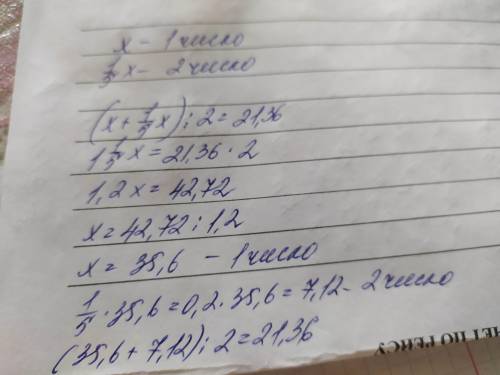 x - 1 число
1/5 x - 2 число
(x + 1/5 x) : 2 = 21,36
1 1/5 x = 21,36 · 2
1,2 x = 42,72
x = 42,72 : 1,2
x = 35,6 - 1 число
1/5 · 35,6 = 0,2 · 35,6 = 7,12 - 2 число
(35,6 + 7,12) : 2 = 21,36
ЧЕТ ПО РЕЙСУ